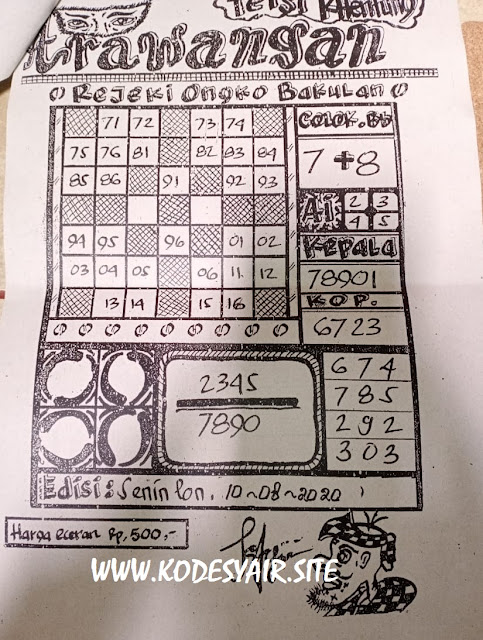 Trawangan
Rejeki Ongko Bakulan
71 72 73 74
75 76 81 82 83 84
85 86 91 92 93
94 95 96 01 02
03 04 05 06 11 12
13 14 15 16
COLOK.BB
7 + 8
Ai 2 3
4 5
Kepala
78901
KOP.
6723
2345
7890
674
785
292
303
Edisi: Senin lon, 10-08-2020
Harga eceran Rp. 500,-
WWW.KODESYAIR.SITE